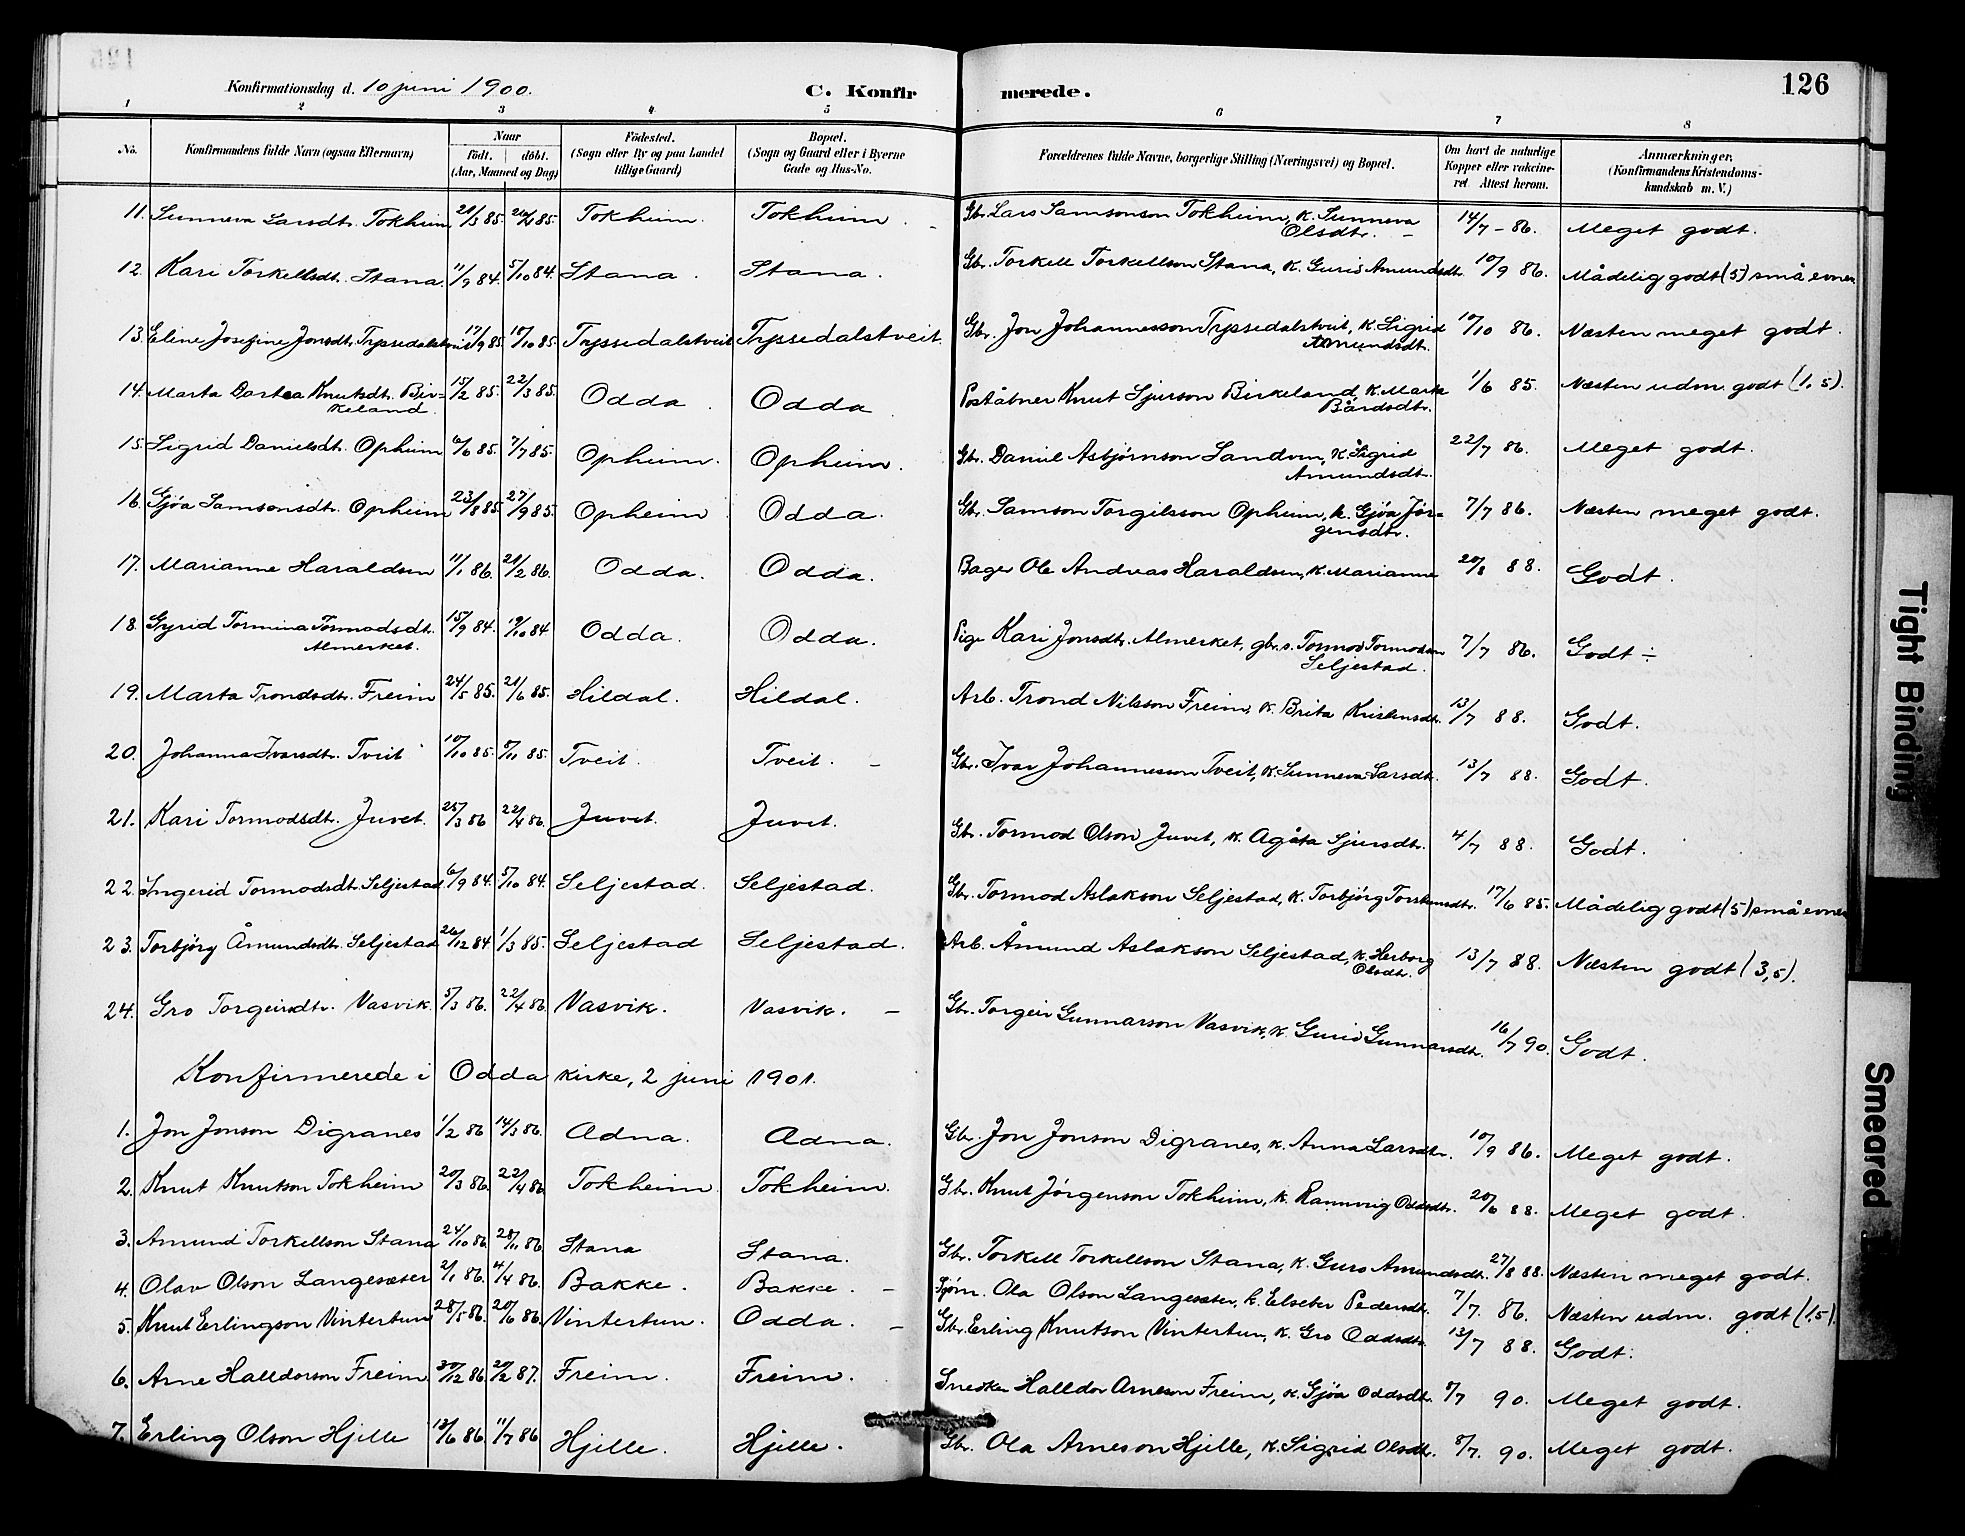 Konfirmationsdag d. 10 juni 1900. C. Konfir merede. 126
1 2 3 4 5 6 7 8
No. Konfirmandens fulde Navn (ogsaa Efternavn) Naar födt. döbt. (Aar, Maaned og Dag) Födested. (Sogn eller By og paa Landet tillige Gaard) Bopæl. (Sogn og Gaard eller i Byerne Gade og Hus-No. Forældrenes fulde Navne, borgerlige Stilling (Næringsvei) og Bopæl. Om havt de naturlige Kopper eller vakcineret Attest herom. Anmærkninger. (Konfirmandens Kristendomskundskab m. V.)
11. Sunneva Larsdt. Tokheim 21/3 85. 26/4 85. Tokheim. Tokheim. Gbr. Lars Samsonson Tokheim, k. Sunneva Olsdt. 14/7 - 86. Meget godt.
12. Kari Torkellsdt. Stana 11/9 84. 5/10 84. Stana. Stana. Gbr. Torkell Torkellson Stana, k. Guris Amundsdt. 10/9 86. Mådelig godt (5) små evner
13. Eline Josefine Jonsdt. Tyssedalstveit 17/9 85. 18/10 85. Tyssedalstveit Tyssedalstveit. Gbr. Jon Johannesson Tyssedalstveit, k. Sigrid Amundsdt. 10/10 86. Næsten meget godt.
14. Marta Dortea Knutsdt. Birkeland. 15/2 85. 22/3 85. Odda. Odda. Poståbner Knut Sjurson Birkeland, k. Marta Bårdsdt. 1/6 85. Næsten udm. godt (1,5).
15. Sigrid Danielsdt. Opheim 6/6 85. 7/7 85. Opheim. Opheim. Gbr. Daniel Asbjørnson Sandvin, k. Sigrid Amundsdt. 22/7 86. Meget godt.
16. Gjøa Samsonsdt. Opheim 23/8 85. 27/9 85. Opheim Odda. Gbr. Samson Torgilsson Opheim, k. Gjøa Jørgensdt. 7/7 86. Næsten meget godt.
17. Marianne Haraldsen 11/1 86. 21/2 86. Odda. Odda. Bager Ole Andreas Haraldsen, k. Marianne 20/8 88. Godt.
18. Gyrid Tormina Tormodsdt. Almerket. 15/9 84. 19/10 84 Odda. Odda. Pige Kari Jonsdt. Almerket, gbr.s. Tormod Tormodson Seljestad. 7/7 86. Godt ÷
19. Marta Trondsdt. Freim 24/5 85. 21/6 85. Hildal. Hildal. Arb. Trond Nilsson Freim, k. Brita Kristensdt. 13/7 88. Godt.
20. Johanna Ivarsdt. Tveit 10/10 85. 8/11 85. Tveit. Tveit. Gbr. Ivar Johannesson Tveit, k. Sunneva Larsdt. 13/7 88. Godt.
21. Kari Tormodsdt. Juvet. 25/3 86 22/4 86. Juvet. Juvet. Gbr. Tormod Olson Juvet, k. Agåta Sjursdt. 4/7 88. Godt.
22. Ingerid Tormodsdt. Seljestad 6/9 84. 5/10 84. Seljestad. Seljestad. Gbr. Tormod Aslakson Seljestad, k. Torbjörg Torsteinsdt. 17/6 85. Mådelig godt (5) små evner
23. Torbjörg Åmundsdt. Seljestad 26/12 84. 1/3 85. Seljestad Seljestad. Arb. Åmund Aslakson Seljestad, k. Herborg Olsdt. 13/7 88. Næsten godt (3,5).
24. Gro Torgeirsdt. Vasvik. 5/3 86. 22/4 86 Vasvik. Vasvik. Gbr. Torgeir Gunnarson Vasvik, k. Guris Gunnarsdt. 16/7 90. Godt.
Konfirmerede i Odda kirke, 2 juni 1901.
1. Jon Jonson Digranes 1/2 86 14/3 86. Adna. Adna. Gbr. Jon Jonson Digranes, k. Anna Larsdt. 10/9 86. Meget godt.
2. Knut Knutson Tokheim 20/3 86. 22/4 86 Tokheim Tokheim. Gbr. Knut Jörgenson Tokheim, k. Rannveig Oddsdt. 20/6 88. Meget godt.
3. Amund Torkellson Stana 24/10 86. 28/11 86 Stana Stana. Gbr. Torkell Torkellson Stana, k. Guro Amundsdt. 27/8 88. Næsten meget godt.
4. Olav Olson Langesæter 2/1 86. 4/4 86. Bakke. Bakke. Sjöm. Ola Olson Langesæter, k. Elseber Pedersdt. 7/7. 86. Næsten udm. godt (1,5).
5. Knut Erlingson Vintertun 28/5 86. 20/6 86. Vintertun. Odda. Gbr. Erling Knutson Vintertun, k. Gro Oddsdt. 13/7 88. Godt.
6. Arne Halldorson Freim 30/12 86 20/2 87. Freim. Freim. Snedker Halldor Arneson Freim, k. Gjøa Oddsdt. 8/7 90. Meget godt.
7. Erling Olson Hjelle 13/6 86. 11/7 86 Hjelle. Hjelle. Gbr. Ola Arneson Hjelle, k. Sigrid Olsdt. 8/7. 90. Meget godt.
Tight Binding
Smeared